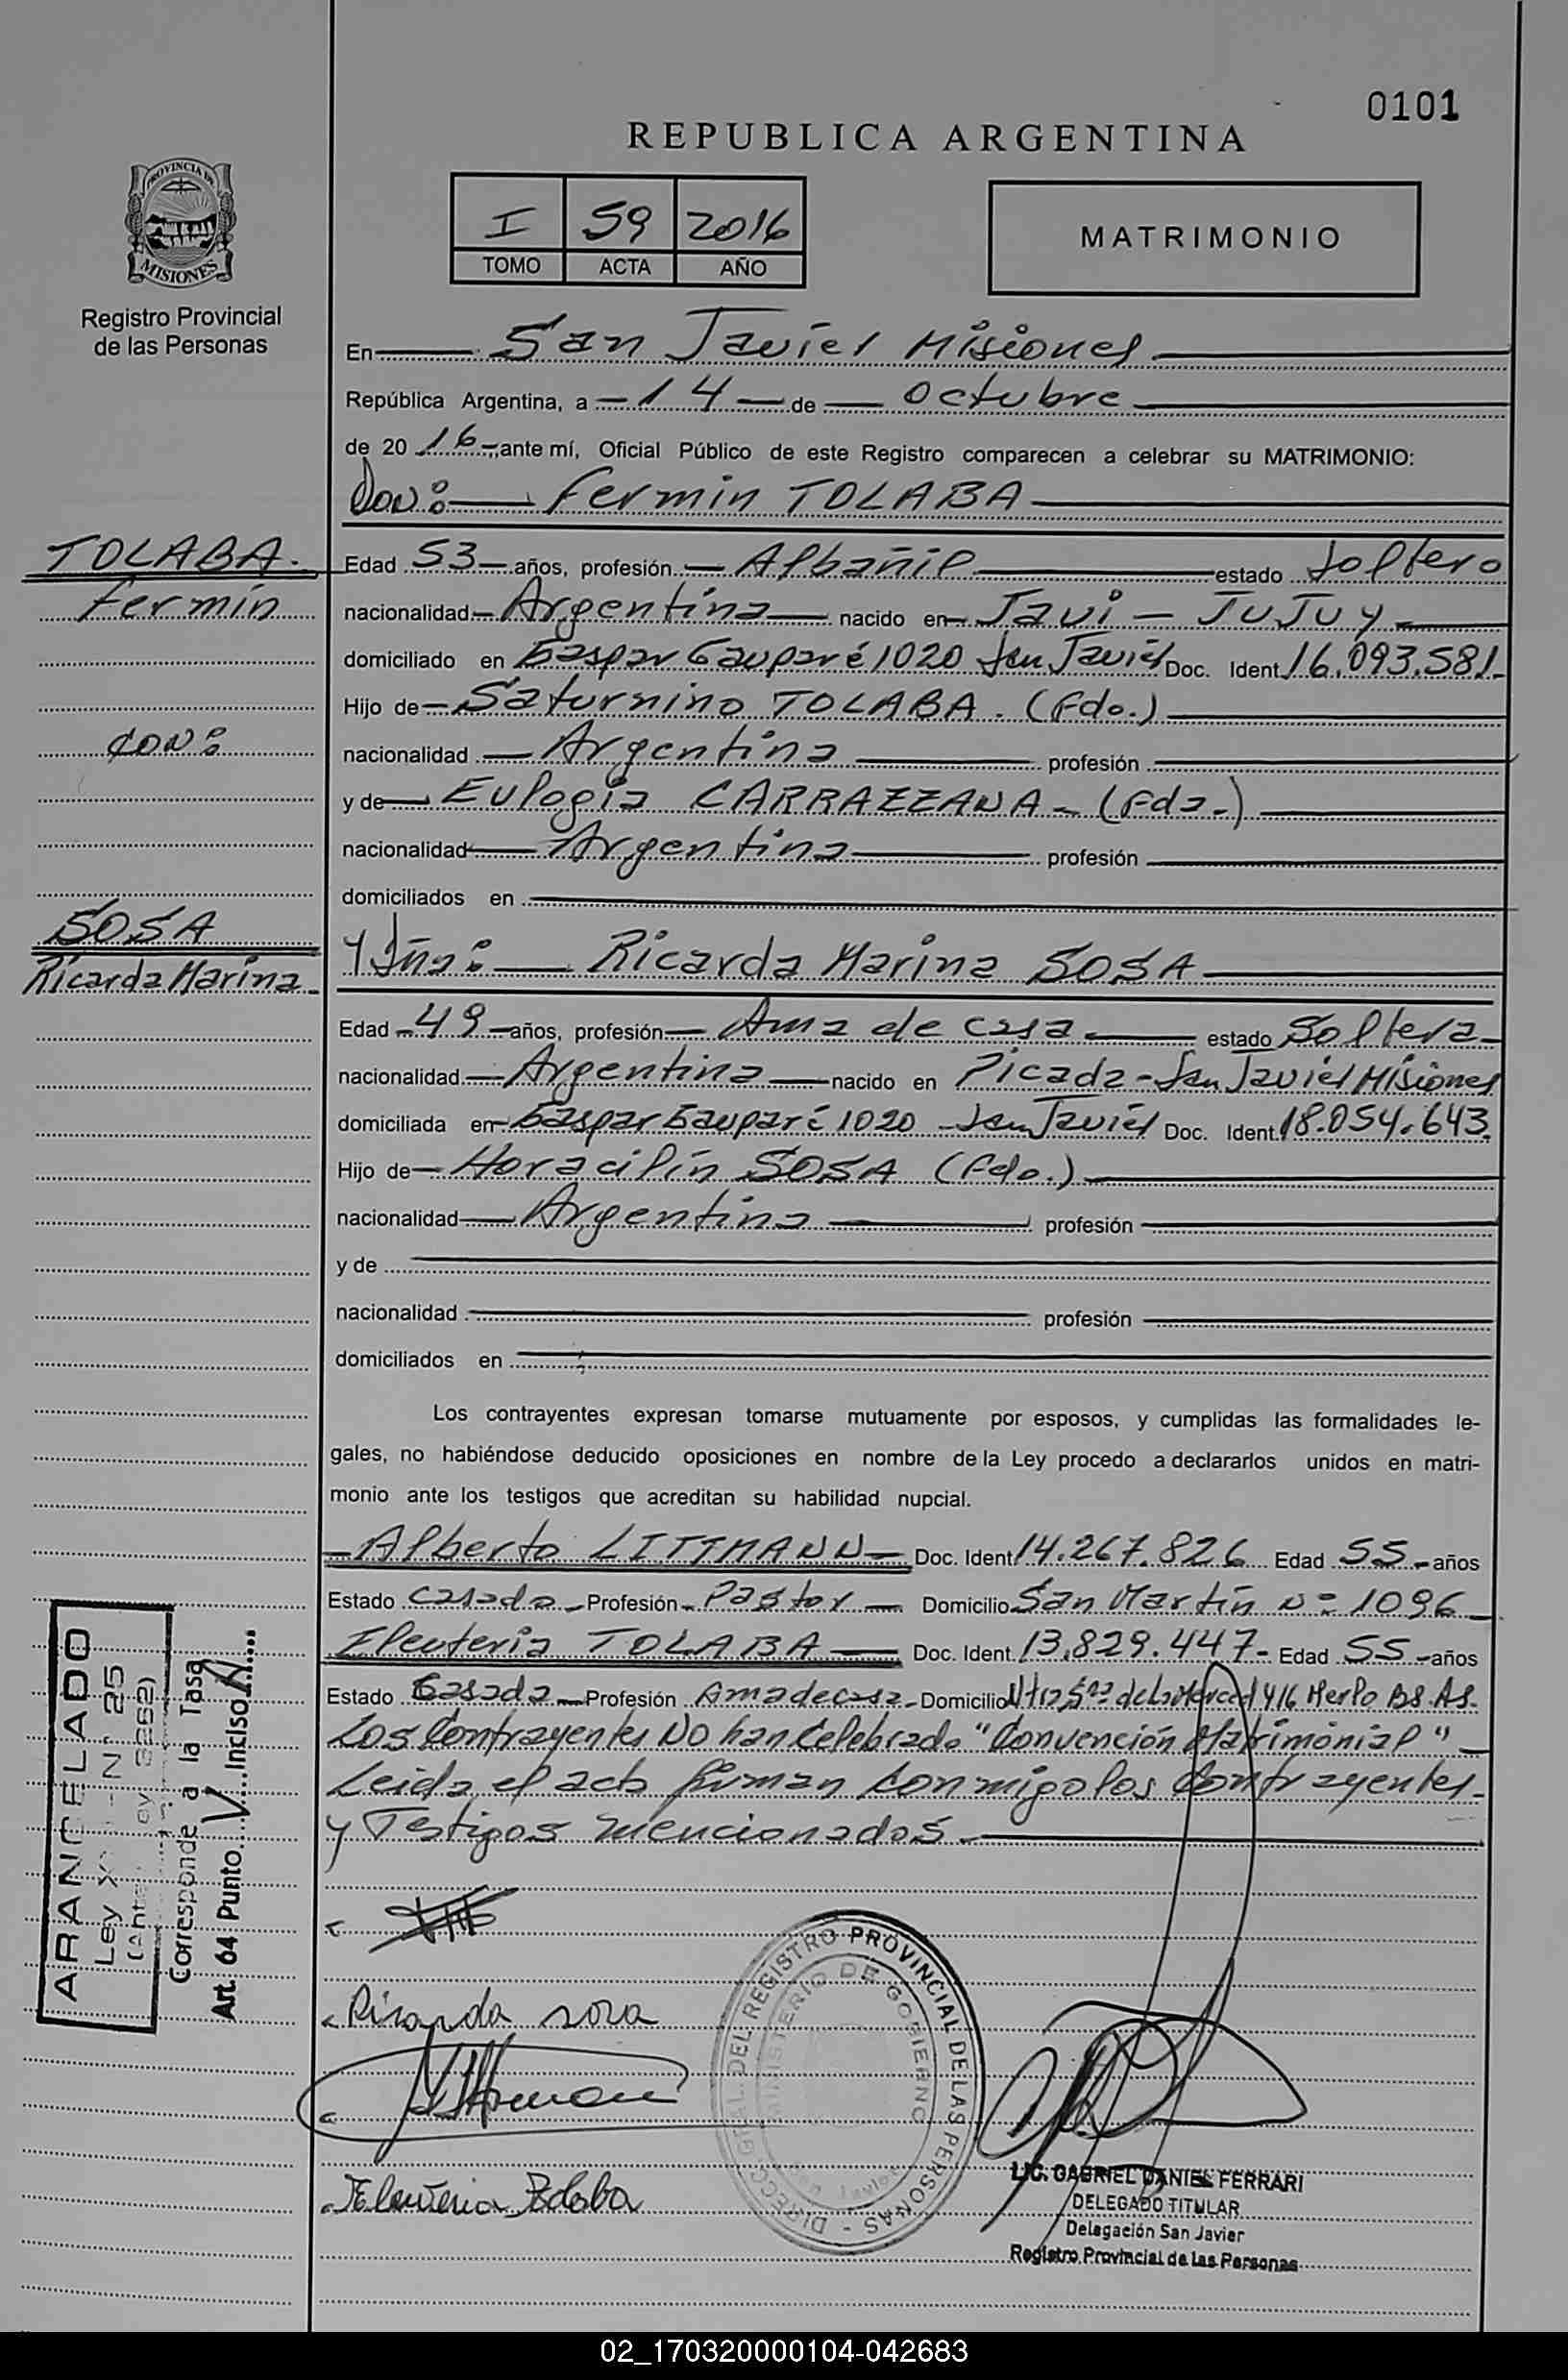 0101
REPUBLICA ARGENTINA
PROVINCIA DE
MISIONES
Registro Provincial
de las Personas
I 59 2016
TOMO ACTA AÑO
MATRIMONIO
En San Javier Misiones
República Argentina, a 14 de Octubre
de 20 16 ante mí, Oficial Público de este Registro comparecen a celebrar su MATRIMONIO:
Don: Fermin TOLABA
TOLABA.
Fermín
CON:
SOSA
Ricarda Marina
Edad 53 años, profesión Albañil estado Soltero
nacionalidad Argentina nacido en Javi - JUJUY
domiciliado en Gaspar Gauparé 1020 San Javier Doc. Ident. 16.093.581
Hijo de Saturnino TOLABA. (Fdo.)
nacionalidad Argentina profesión
y de Eulogia CARRAZZANA - (Fda.)
nacionalidad Argentina profesión
domiciliados en
y Dña: Ricarda Marina SOSA
Edad 49 años, profesión Ama de casa estado Soltera
nacionalidad Argentina nacido en Picada - San Javier Misiones
domiciliada en Gaspar Gauparé 1020 San Javier Doc. Ident. 18.054.643.
Hijo de Horacilín SOSA (Fdo.)
nacionalidad Argentina profesión
y de
nacionalidad profesión
domiciliados en
Los contrayentes expresan tomarse mutuamente por esposos, y cumplidas las formalidades le-
gales, no habiéndose deducido oposiciones en nombre de la Ley procedo a declararlos unidos en matri-
monio ante los testigos que acreditan su habilidad nupcial.
Alberto LITTMANN Doc. Ident. 14.267.826 Edad 55 años
Estado Casado Profesión Pastor Domicilio San Martín Nº 1096
Eleuteria TOLABA Doc. Ident. 13.829.447 Edad 55 años
Estado Casada Profesión Ama de casa Domicilio Ntra Sra de la Merced 1416 Merlo BS.AS.
Los Contrayentes NO han Celebrado "Convención Matrimonial"
Leída el acta firman conmigo los Contrayentes
y Testigos mencionados
ARANCELADO
Ley N° 25
Corresponde a la Tasa
Art. 64 Punto V Inciso A
Ricarda sosa
Eleuteria Tolaba
DIRECC. GRAL. DEL REGISTRO PROVINCIAL DE LAS PERSONAS
MINISTERIO DE GOBIERNO
San Javier
LIC. GABRIEL DANIEL FERRARI
DELEGADO TITULAR
Delegación San Javier
Registro Provincial de Las Personas
02_170320000104-042683